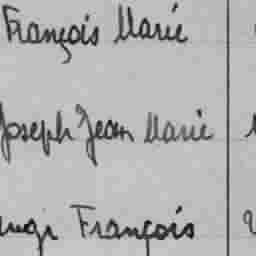 François Marie
Joseph Jean Marie
François